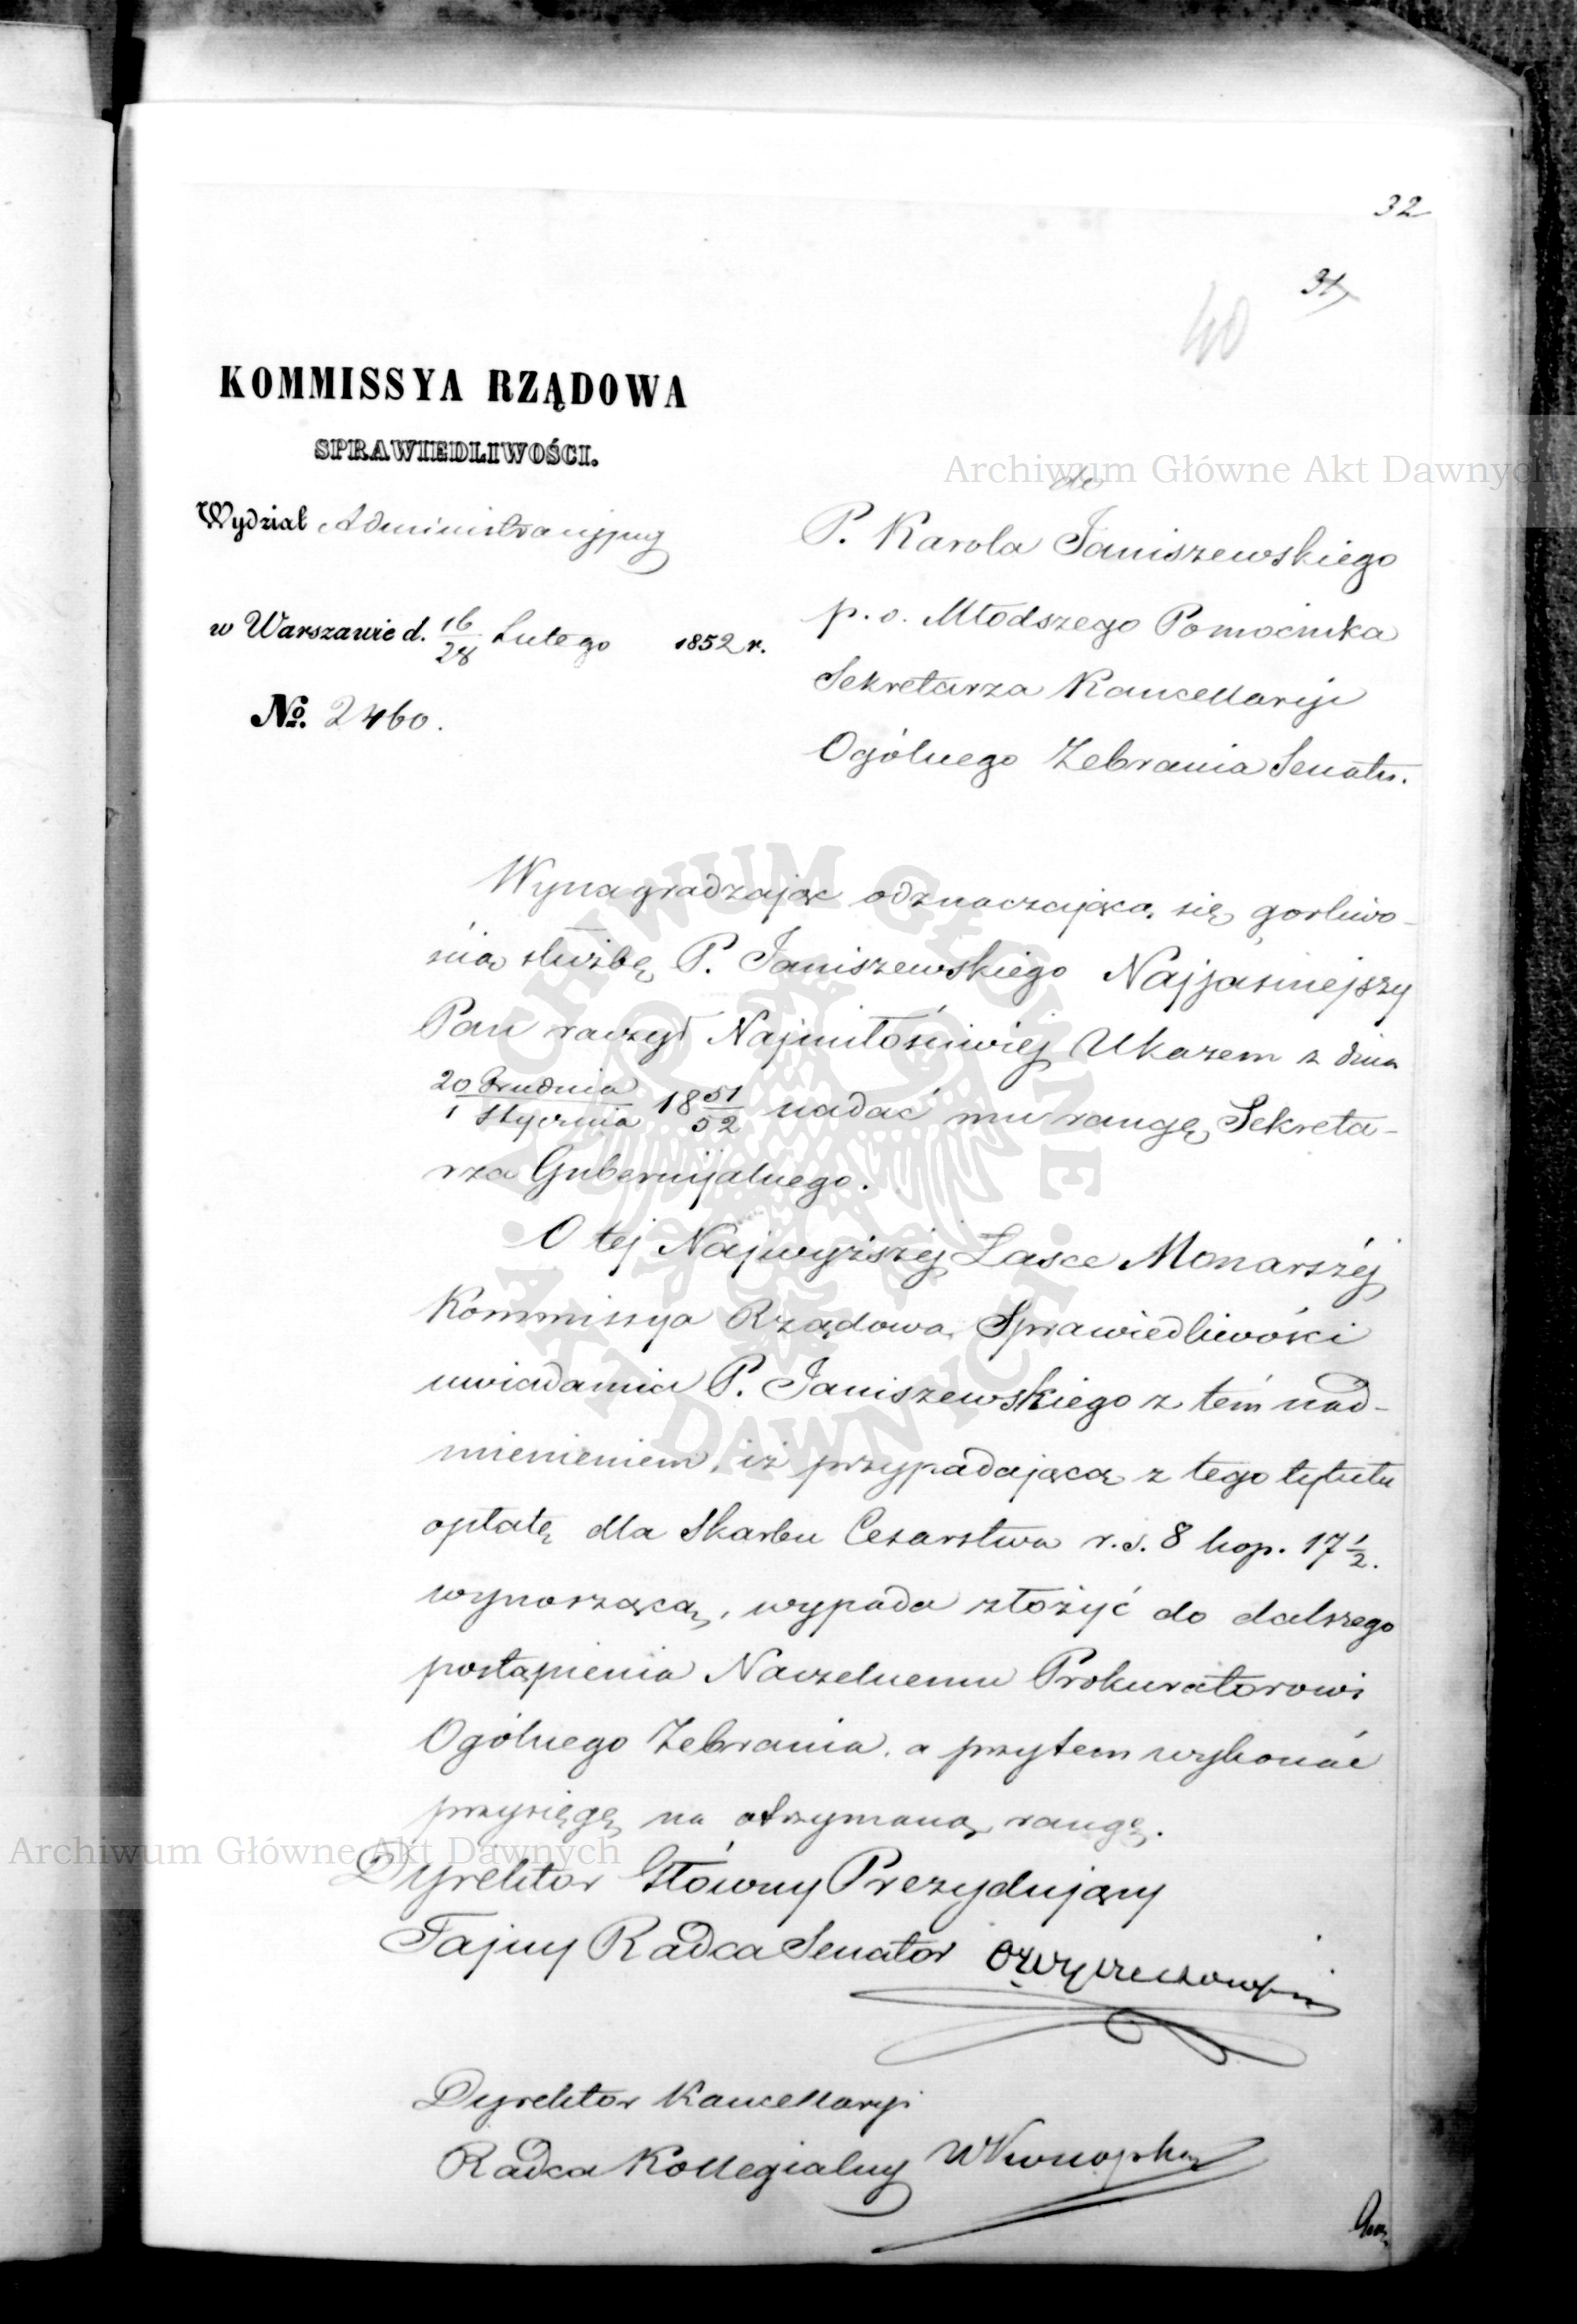 32
31
40
KOMMISSYA RZĄDOWA
SPRAWIEDLIWOŚCI.
Wydział Administracyjny
w Warszawie d. 16/28 Lutego 1852 r.
No. 2460.
do
P. Karola Janiszewskiego
p. o. Młodszego Pomocnika
Sekretarza Kancellaryi
Ogólnego Zebrania Senatu.
Wynagradzając odznaczającą się gorliwo-
ścią służbę P. Janiszewskiego Najjaśniejszy
Pan raczył Najmiłościwiej Ukazem z dnia
20 Grudnia/1 Stycznia 1851/52 nadać mu rangę Sekreta-
rza Gubernijalnego.
O tej Najwyższej Łasce Monarszéj
Kommissya Rządowa Sprawiedliwości
uwiadamia P. Janiszewskiego z tém nad-
mienieniem, iż przypadającą z tego tytułu
opłatę dla Skarbu Cesarstwa r. s. 8 kop. 17 1/2.
wynoszącą, wypada złożyć do dalszego
postąpienia Naczelnemu Prokuratorowi
Ogólnego Zebrania, a przytem wykonać
przysięgę na otrzymaną rangę.
Dyrektor Główny Prezydujący
Tajny Radca Senator
Dyrektor Kancellaryi
Radca Kollegialny
Archiwum Główne Akt Dawnych
Archiwum Główne Akt Dawnych
ARCHIWUM GŁÓWNE
AKT DAWNYCH